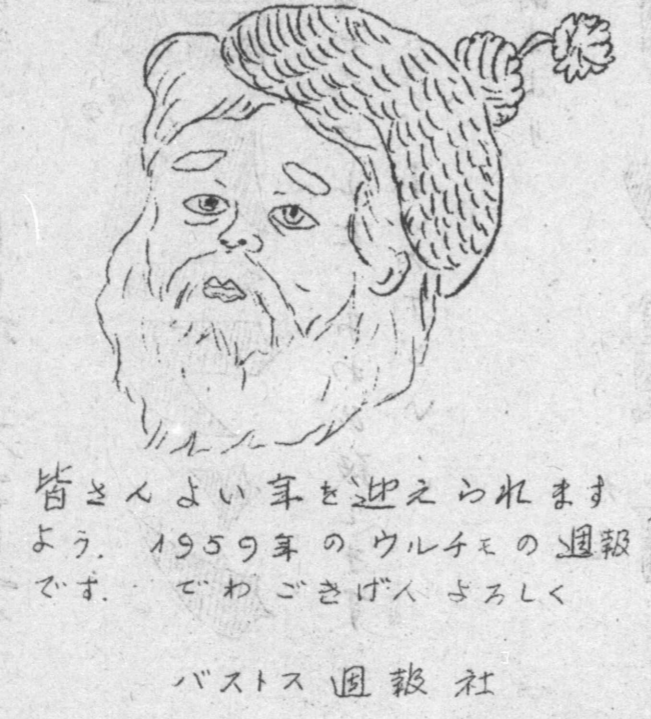 皆さんよい年を迎えられます
よう. 1959年のウルチモの週報
です. でわごきげんよろしく
バストス週報社